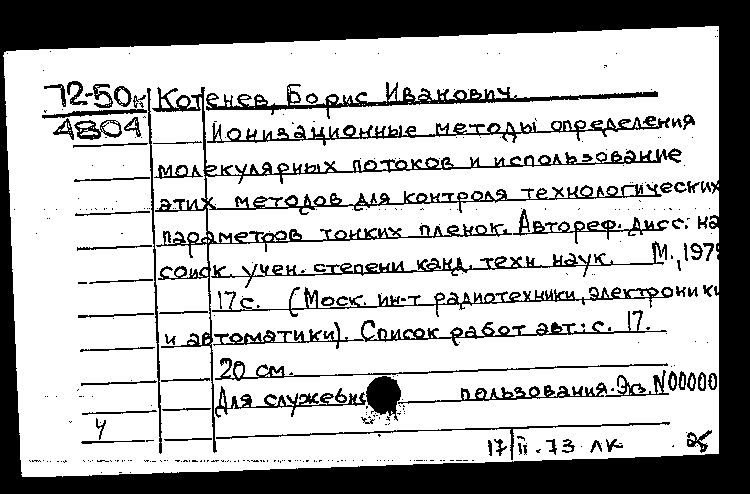 72-50к Котенев, Борис Иванович.
4804
Ионизационные методы определения
молекулярных потоков и использование
этих методов для контроля технологических
параметров тонких пленок. Автореф. дисс. на
соиск. учен. степени канд. техн. наук. М., 197
17 с. (Моск. ин-т радиотехники, электроники
и автоматики). Список работ авт.: с. 17.
20 см.
Для служебно пользования. Экз. N00000
Ч
17/II.73 ЛК